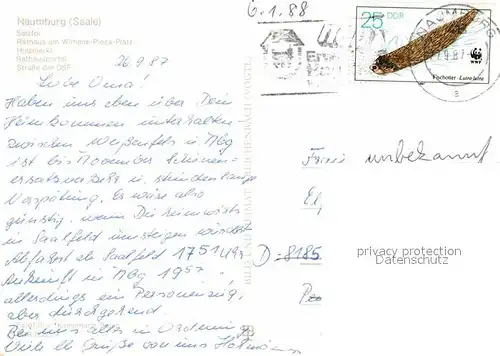 Naumburg (Saale)
Salztor
Rathaus am Wilhelm-Pieck-Platz
Holzmarkt
Rathausportal
Straße der DSF
6.1.88
25 DDR
Fischotter · Lutra lutra
WWF
26.9.87
Liebe Oma!
Haben uns eben über Dein
Heimkommen unterhalten.
zwischen Weißenfels u. Nbg
ist bis November Schienen-
ersatzverkehr u. stundenlange
Verspätung. Es wäre also
günstig, wenn Du
in Saalfeld umsteigen würdest
Abfahrt ab Saalfeld 17 51 Uhr
Ankunft in Nbg 19 57
allerdings ein Personenzug,
aber durchgehend.
Bei uns alles in Ordnung
Viele lb Grüße von uns
Frau unbekannt
D-8185
privacy protection
Datenschutz